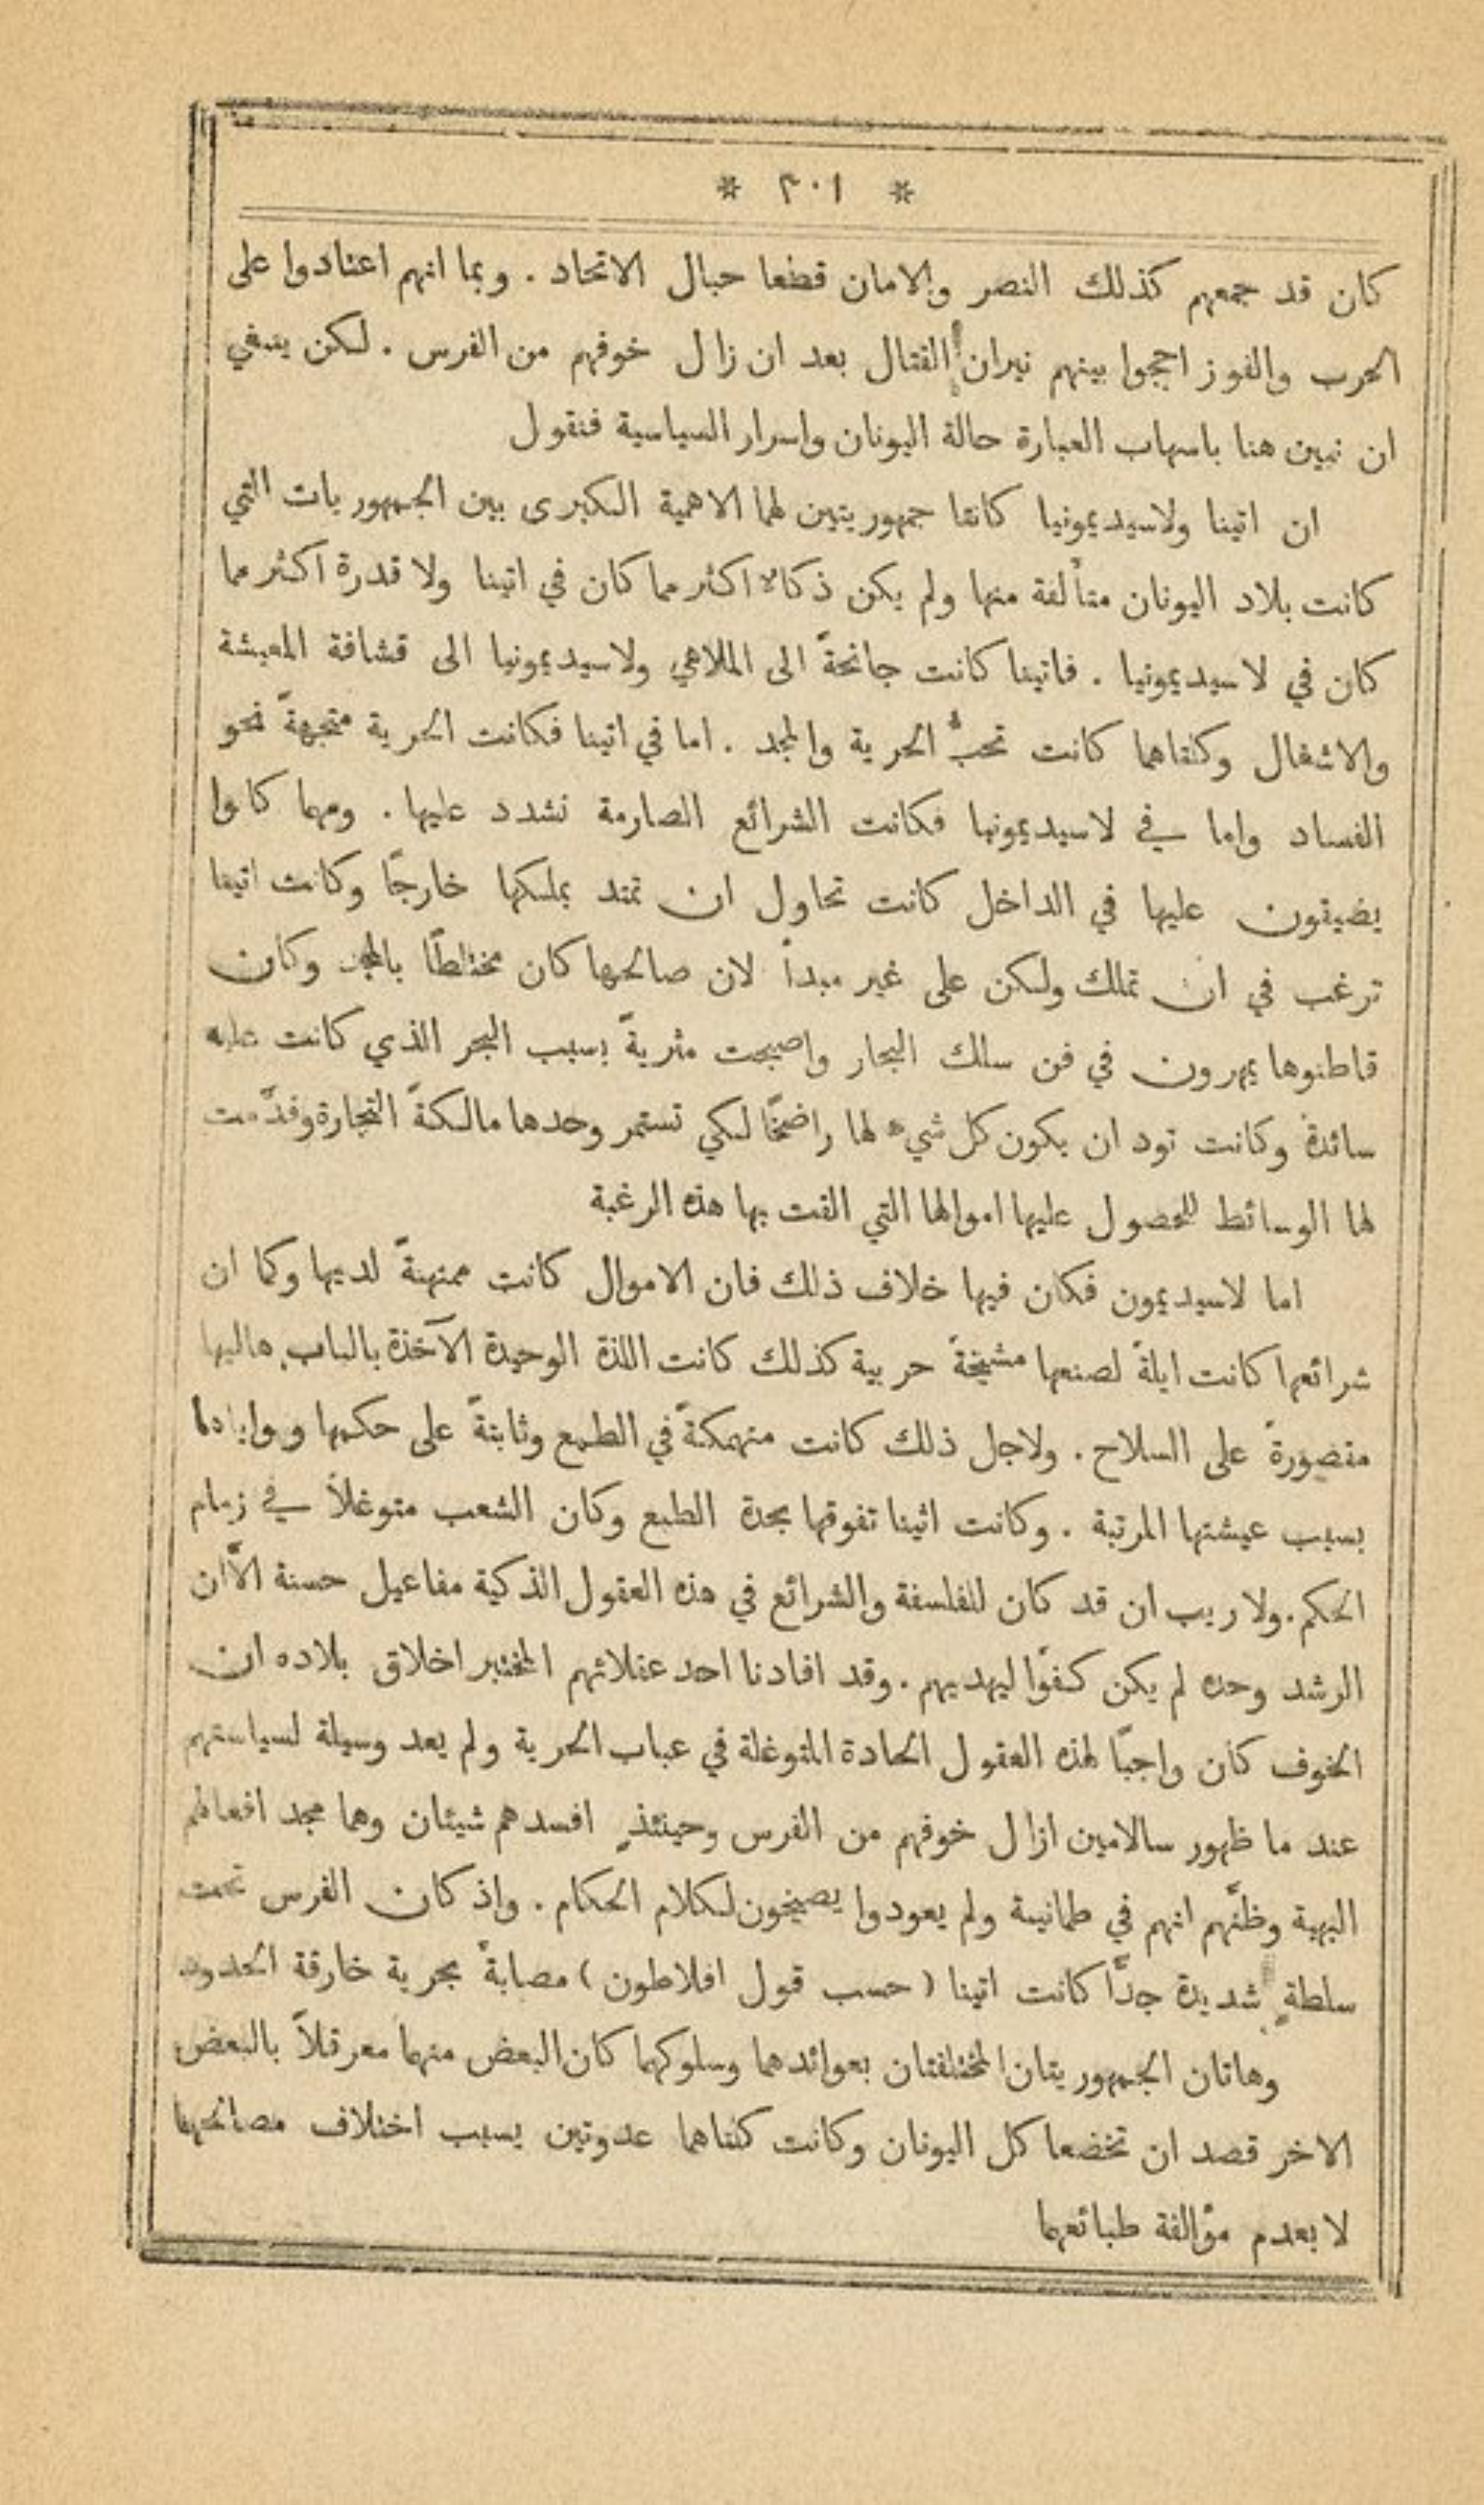 * ٣٠١ *
كان قد جمعهم كذلك النصر والامان قطعا حبال الاتحاد . وبما انهم اعتادوا على
الحرب والفوز اججوا بينهم نيران القتال بعد ان زال خوفهم من الفرس . لكن ينبغي
ان نبين هنا باسهاب العبارة حالة اليونان واسرار السياسية فنقول
ان اتينا ولاسيديمونيا كانتا جمهوريتين لهما الاهمية الكبرى بين الجمهوريات التي
كانت بلاد اليونان متألفة منها ولم يكن ذكاء اكثر مما كان في اتينا ولا قدرة اكثر مما
كان في لاسيديمونيا . فاتينا كانت جانحةً الى الملاهي ولاسيديمونيا الى قشافة المعيشة
والاشغال وكلتاهما كانت تحبُّ الحرية والمجد . اما في اتينا فكانت الحرية متجهةً نحو
الفساد واما في لاسيديمونيا فكانت الشرائع الصارمة تشدد عليها . ومهما كانوا
يضيقون عليها في الداخل كانت تحاول ان تمتد بملكها خارجًا وكانت اتينا
ترغب في ان تملك ولكن على غير مبدأ لان صالحها كان مختلطًا بالمجد وكان
قاطنوها يمهرون في فن سلك البحار واصبحت مثريةً بسبب البحر الذي كانت عليه
سائدة وكانت تود ان يكون كل شيء لها راضخًا لكي تستمر وحدها مالكةً التجارة وقدَّمت
لها الوسائط للحصول عليها اموالها التي القت بها هذه الرغبة
اما لاسيديمون فكان فيها خلاف ذلك فان الاموال كانت ممتهنةً لديها وكما ان
شرائعها كانت ايلةً لصنعها مشيخةً حربية كذلك كانت اللذة الوحيدة الآخذة بالباب هاليها
مقصورةً على السلاح . ولاجل ذلك كانت منهمكةً في الطمع وثابتةً على حكمها
بسبب عيشتها المرتبة . وكانت اثينا تفوقها بحدة الطبع وكان الشعب متوغلاً في زمام
الحكم . ولا ريب ان قد كان للفلسفة والشرائع في هذه العقول الذكية مفاعيل حسنة الاَّ ان
الرشد وحده لم يكن كفوًا ليهديهم . وقد افادنا احد عقلائهم المختبر اخلاق بلاده ان
الخوف كان واجبًا لهذه العقول الحادة المتوغلة في عباب الحرية ولم يعد وسيلة لسياستهم
عند ما ظهور سالامين ازال خوفهم من الفرس وحينئذٍ افسدهم شيئان وهما مجد افعالهم
البهية وظنَّهم انهم في طمانينة ولم يعودوا يصيخون لكلام الحكام . واذ كان الفرس تحت
سلطةٍ شديدة جدًّا كانت اتينا ( حسب قول افلاطون ) مصابةً بحرية خارقة الحدود
وهاتان الجمهوريتان المختلفتان بعوائدهما وسلوكهما كان البعض منهما معرقلاً بالبعض
الاخر قصد ان تخضعا كل اليونان وكانت كلتاهما عدوتين بسبب اختلاف مصالحهما
لا بعدم مؤالفة طبائعهما